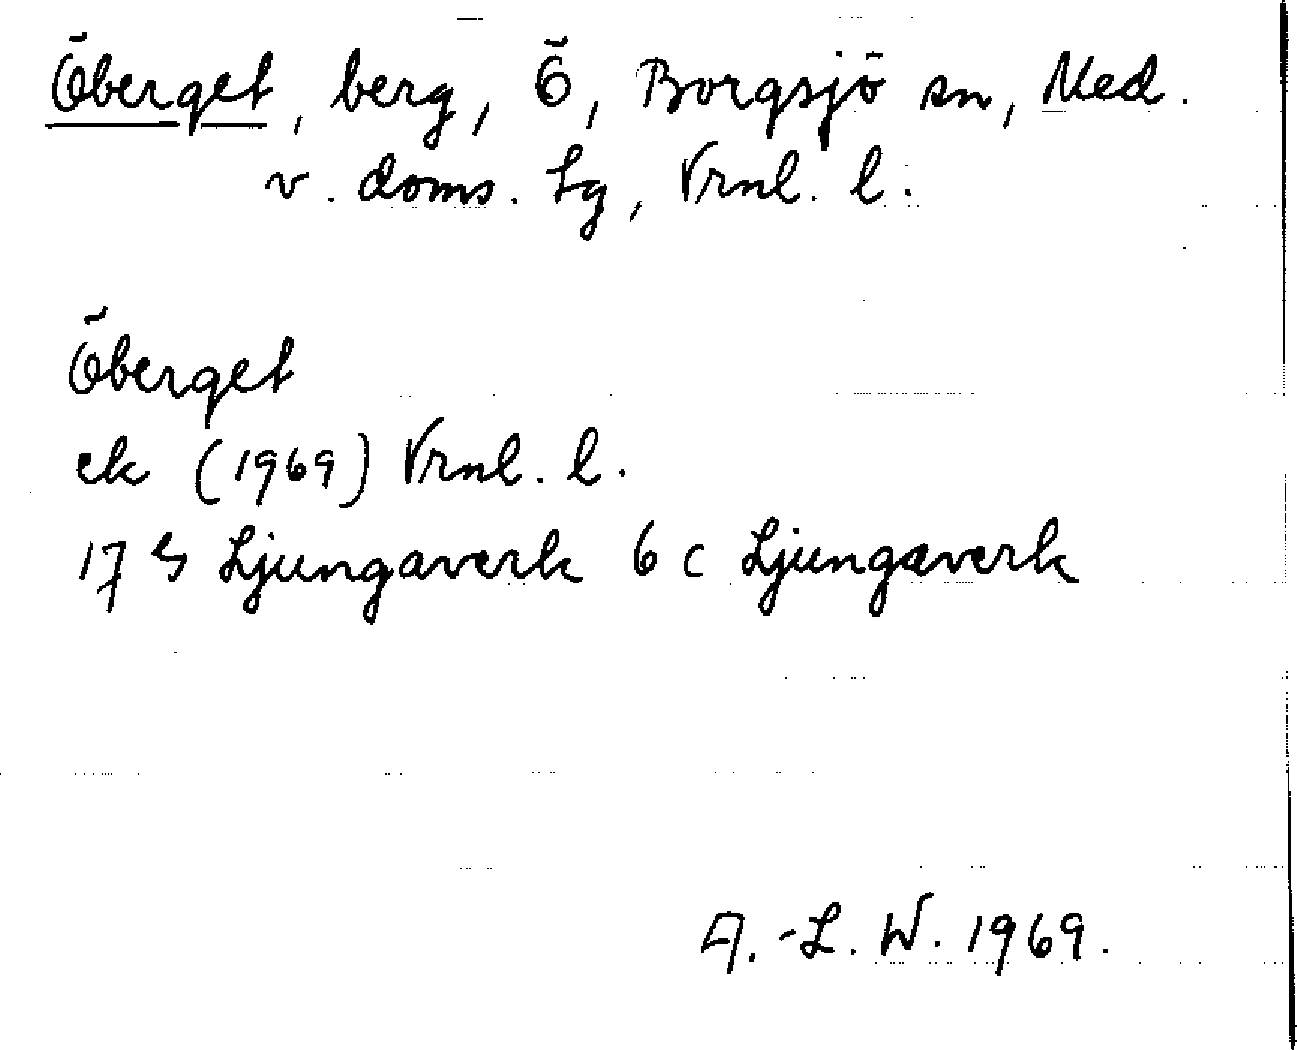 Öberget, berg, Ö, Borgsjö sn, Med.
v. doms. Lg, Vrnl. l.
Öberget
ek (1969) Vrnl. l.
17 G Ljungaverk 6 c Ljungaverk
A.-L. W. 1969.